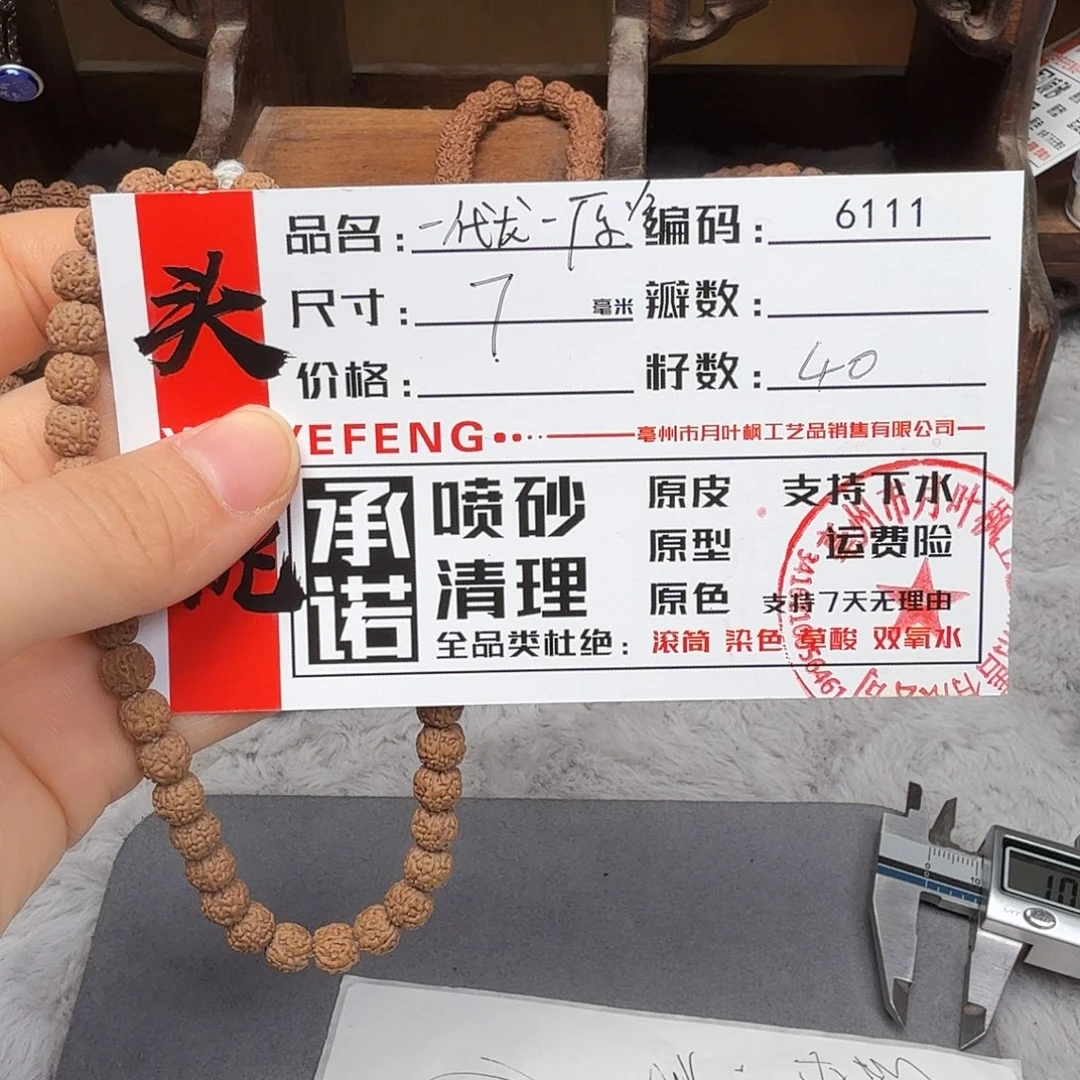 品名：一代龙一 编码：6111
尺寸：7 毫米 瓣数：
价格： 籽数：40
头
YEFENG
亳州市月叶枫工艺品销售有限公司
承诺
喷砂 原皮 支持下水
清理 原型 运费险
原色 支持7天无理由
全品类杜绝：滚筒 染色 草酸 双氧水